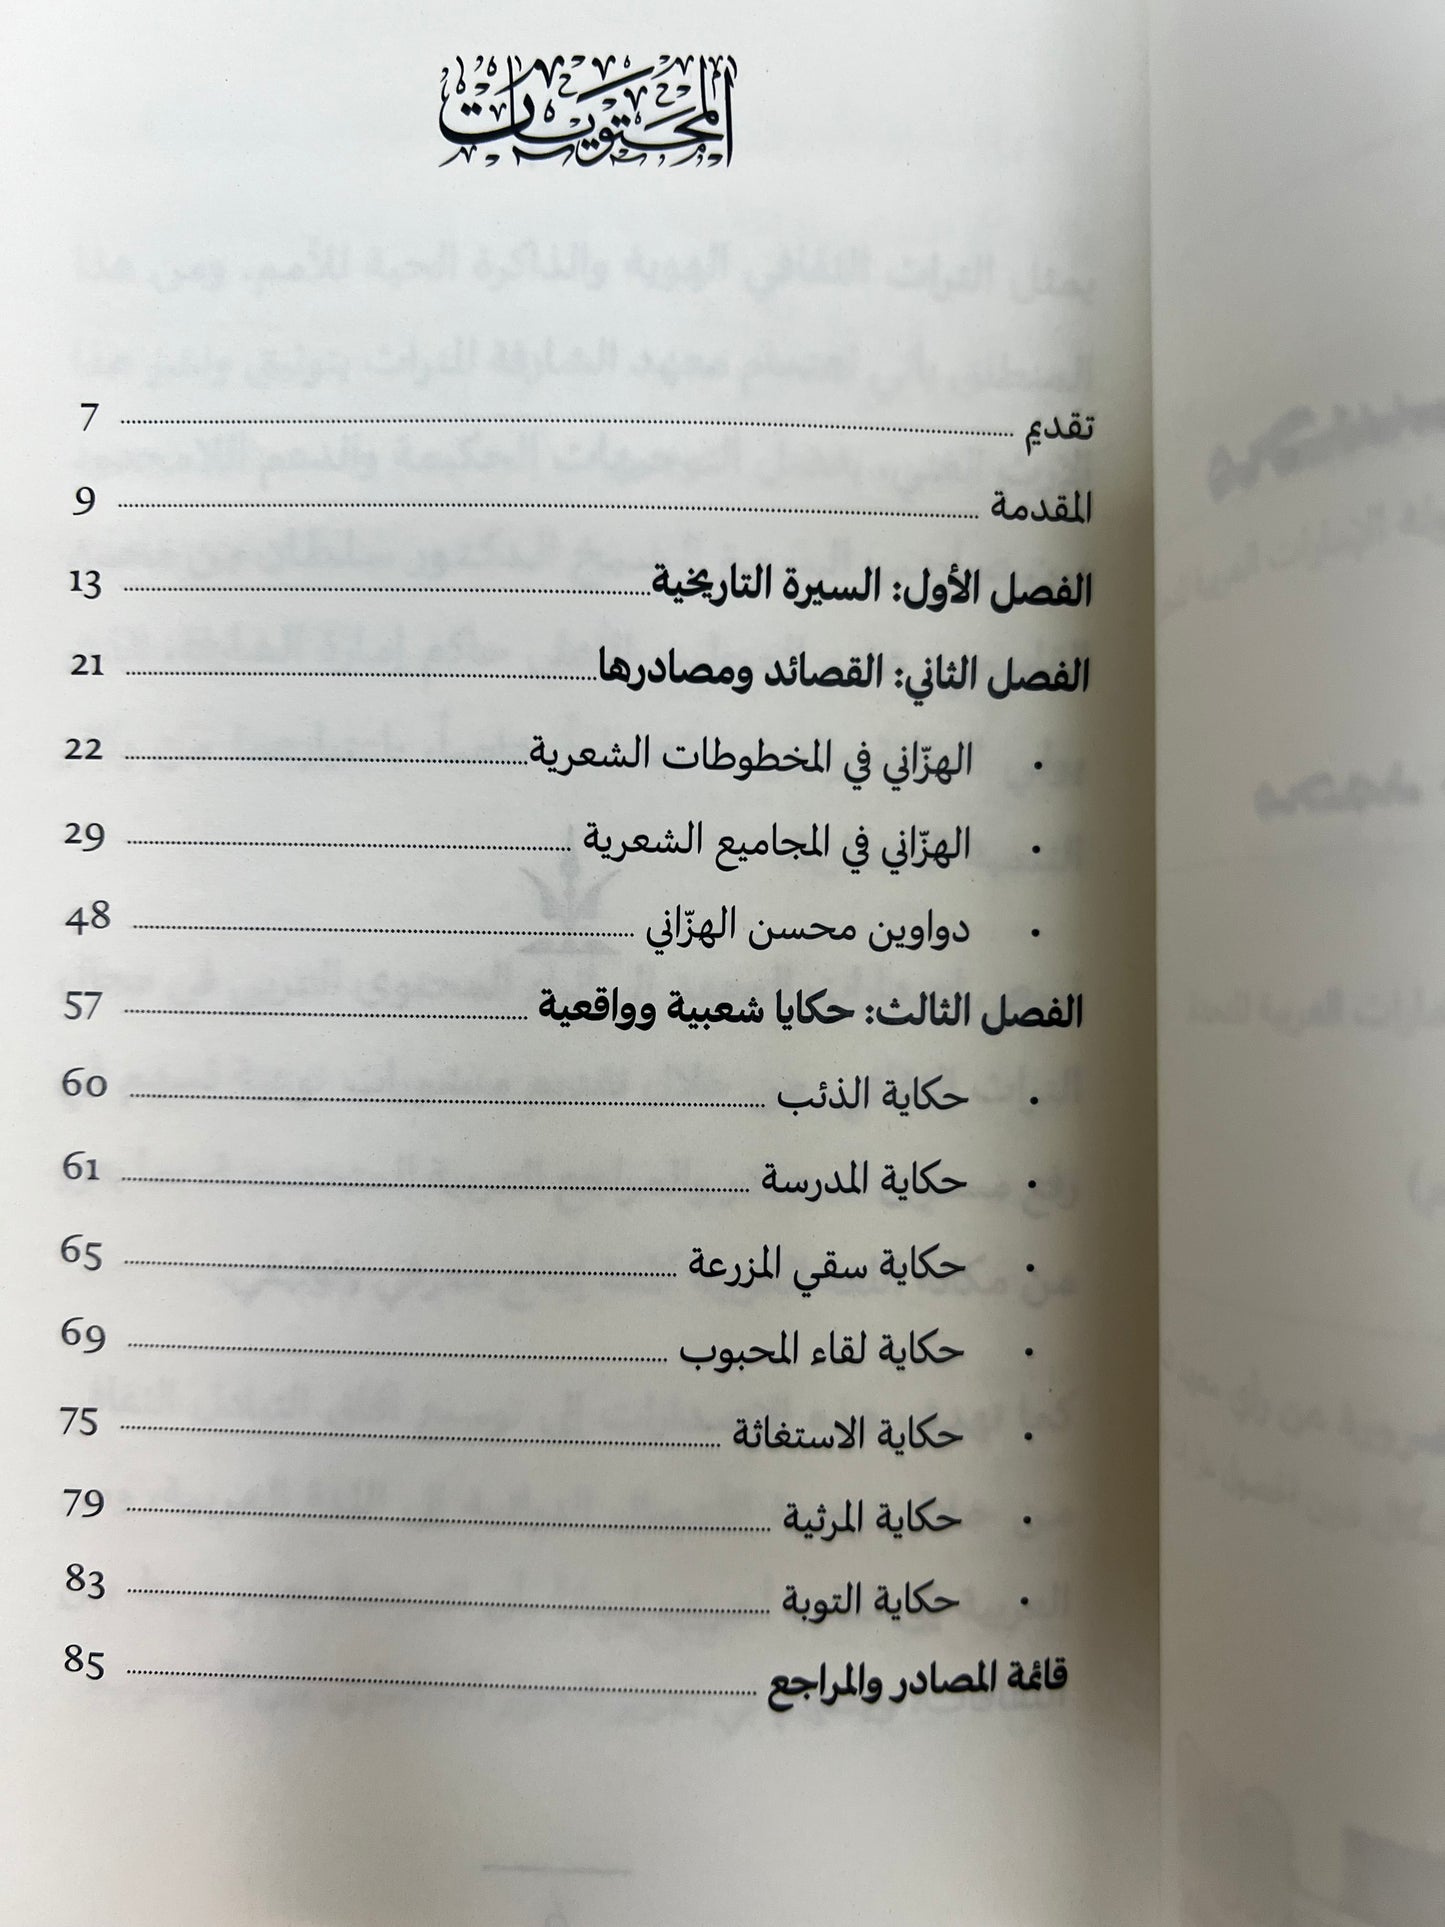 المحتويات
تقديم 7
المقدمة 9
الفصل الأول: السيرة التاريخية 13
الفصل الثاني: القصائد ومصادرها 21
• الهزّاني في المخطوطات الشعرية 22
• الهزّاني في المجاميع الشعرية 29
• دواوين محسن الهزّاني 48
الفصل الثالث: حكايا شعبية وواقعية 57
• حكاية الذئب 60
• حكاية المدرسة 61
• حكاية سقي المزرعة 65
• حكاية لقاء المحبوب 69
• حكاية الاستغاثة 75
• حكاية المرثية 79
• حكاية التوبة 83
قائمة المصادر والمراجع 85